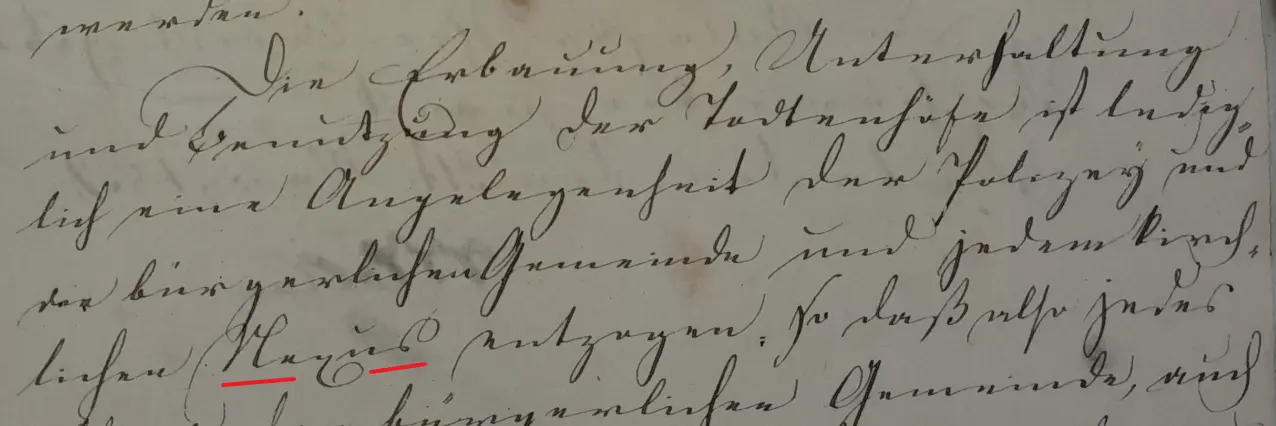 werden.
Die Erbauung, Unterhaltung
und Benutzung der Todtenhöfe ist ledig-
lich eine Angelegenheit der Polizey und
der bürgerlichen Gemeinde und jedem kirch-
lichen Nexus entzogen, so daß also jedes
der bürgerlichen Gemeinde, auch